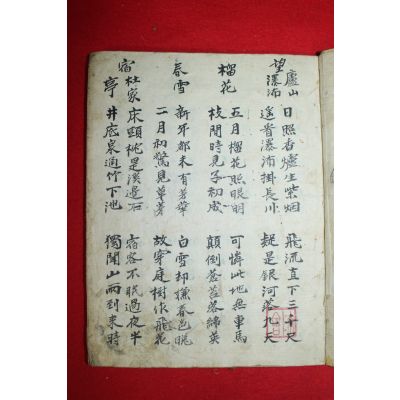 望廬山瀑沛
日照香爐生紫烟 飛流直下三千尺
遙看瀑沛掛長川 疑是銀河落九天
榴花
五月榴花照眼明 可憐此地無車馬
枝間時見子初成 顛倒蒼苔落絳英
春雪
新年都未有芳華 白雪却嫌春色晩
二月初驚見草芽 故穿庭樹作飛花
宿杜家亭
床頭枕是溪邊石 宿客不眠過夜半
井底泉通竹下池 獨聞山雨到來時